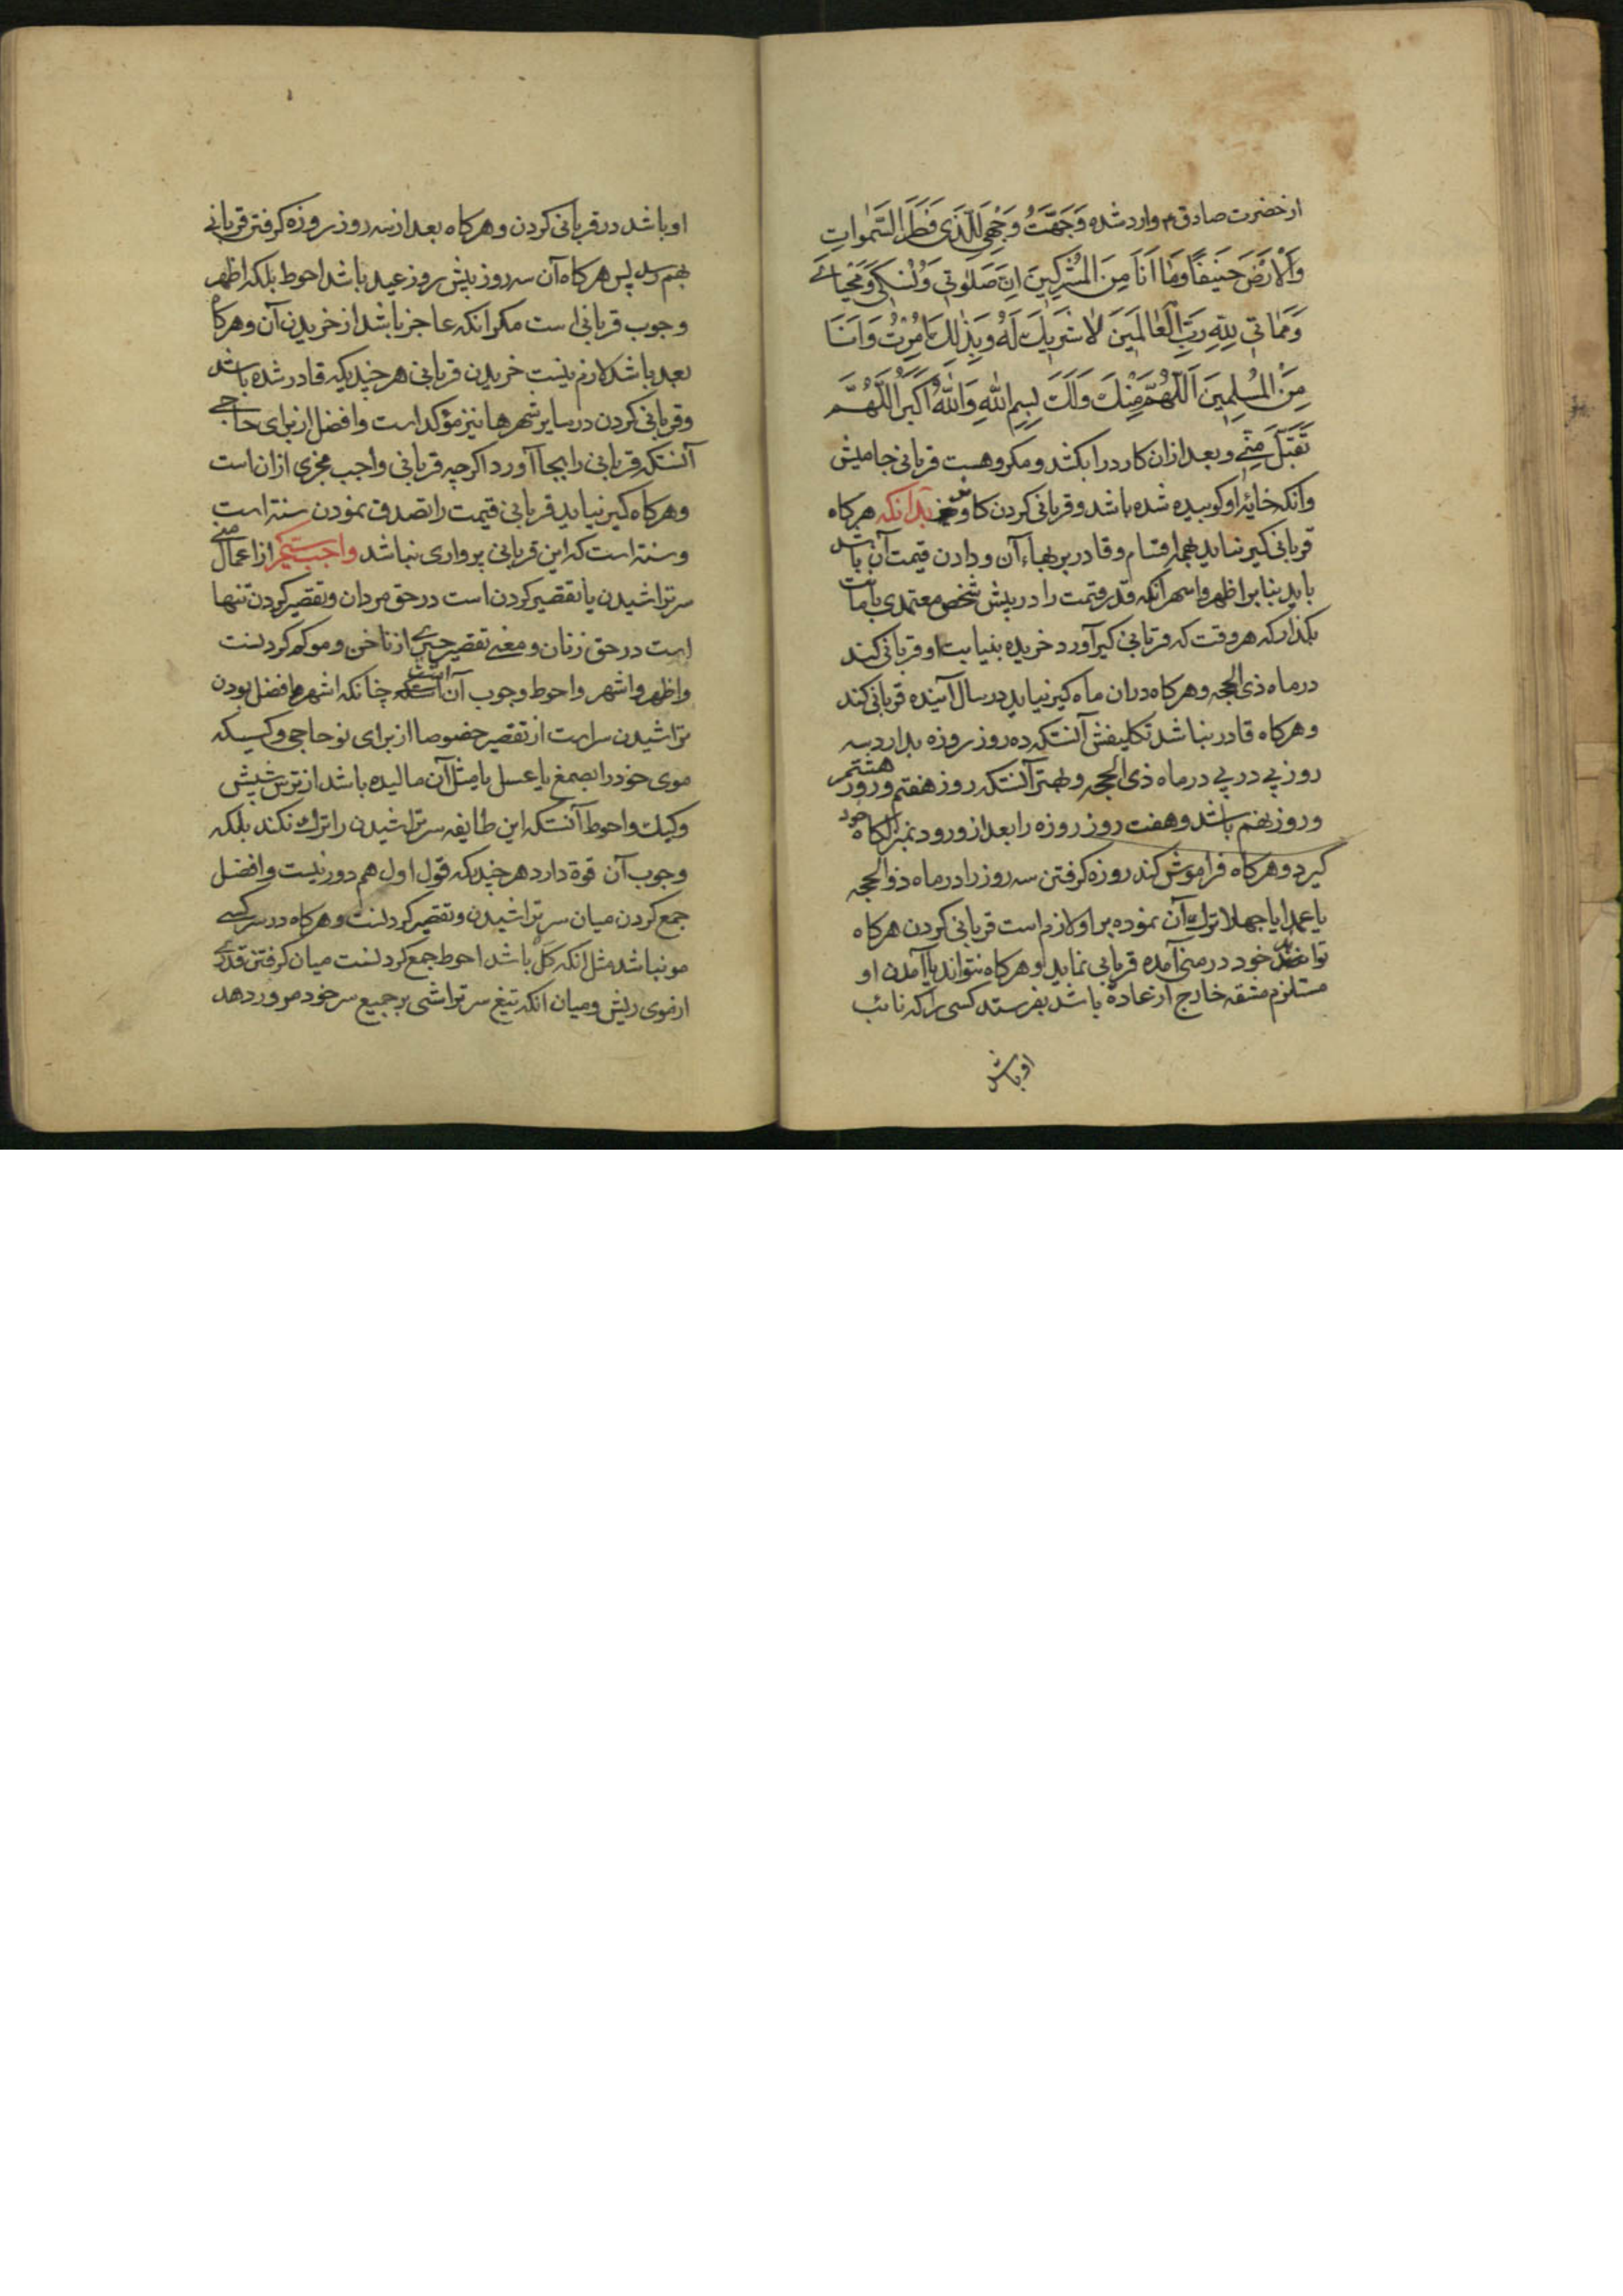 از حضرت صادق ۴ وارد شده وَجَّهْتُ وَجْهِيَ لِلَّذِي فَطَرَ السَّمٰوَاتِ
وَالْاَرْضَ حَنِيفًا وَمٰا اَنَا مِنَ الْمُشْرِكِينَ اِنَّ صَلٰوتِي وَنُسُكِي وَمَحْيٰايَ
وَمَمٰاتِي لِلّٰهِ رَبِّ الْعٰالَمِينَ لٰا شَرِيكَ لَهُ وَبِذٰلِكَ اُمِرْتُ وَاَنَا
مِنَ الْمُسْلِمِينَ اَللّٰهُمَّ مِنْكَ وَلَكَ بِسْمِ اللّٰهِ وَاللّٰهُ اَكْبَرُ اَللّٰهُمَّ
تَقَبَّلْ مِنِّي و بعد از ان كارد را بكشد و مكروهست قربانى جاميش
وانكه خايهٔ او كوبيده شده باشد و قربانى كردن كاو نر بدانكه هركاه
قربانى كير نيايد بهمه اقسام و قادر بر بهاء آن و دادن قيمت آن باشد
بايد بنا بر اظهر و اشهر انكه قدر قيمت را در پيش شخص معتمدى با امانت
بكذارد كه هر وقت كه قربانى كير آورد خريده بنيابت او قربانى كند
در ماه ذى الحجه و هركاه دران ماه كير نيايد در سال آينده قربانى كند
و هركاه قادر نباشد تكليفش آنستكه ده روز روزه بدارد سه
روز پى در پى در ماه ذى الحجه و بهتر آنستكه روز هفتم و روز هشتم
و روز نهم باشد و هفت روز روزه را بعد از ورود بمنزلكاه خود
كيرد و هركاه فراموش كند روزه كرفتن سه روز را در ماه ذوالحجه
يا عمدا يا جهلا ترك آن نموده بر او لازم است قربانى كردن هركاه
تواند خود در منى آمده قربانى نمايد و هركاه نتواند يا آمدن او
مستلزم مشقه خارج از عادة باشد بفرستد كسى را كه نائب
او باشد
او باشد در قربانى كردن و هركاه بعد از سه روز روزه كرفتن قربانى
بهم رسد پس هركاه آن سه روز پيش روز عيد باشد احوط بلكه اظهر
وجوب قربانى است مكر انكه عاجز باشد از خريدن آن و هركاه
بعد باشد لازم نيست خريدن قربانى هر چند كه قادر شده باشد
و قربانى كردن در ساير شهرها نيز مؤكد است و افضل از براى حاجى
آنستكه قربانى را بجا آورد اكرچه قربانى واجب مجزى ازان است
و هركاه كير نيايد قربانى قيمت را تصدق نمودن سنة است
و سنة است كه اين قربانى پروارى نباشد واجب سيم از اعمال منى
سر تراشيدن يا تقصير كردن است در حق مردان و تقصير كردن تنها
است در حق زنان و معنى تقصير چيزى از ناخن و مو كم كردنست
و اظهر و اشهر و احوط وجوب آن است چنانكه اشهر افضل بودن
تراشيدن سر است از تقصير خصوصا از براى نو حاجى و كسيكه
موى خود را بصمغ يا عسل يا مثل آن ماليده باشد از ترس شپش
و كيك و احوط آنستكه اين طايفه سر تراشيدن را ترك نكند بلكه
وجوب آن قوة دارد هر چند كه قول اول هم دور نيست و افضل
جمع كردن ميان سر تراشيدن و تقصير كردنست و هركاه در سر كسى
مو نباشد مثل انكه كل باشد احوط جمع كردنست ميان كرفتن قدرى
از موى ريش و ميان انكه تيغ سر تراشى بر جميع سر خود مرور دهد